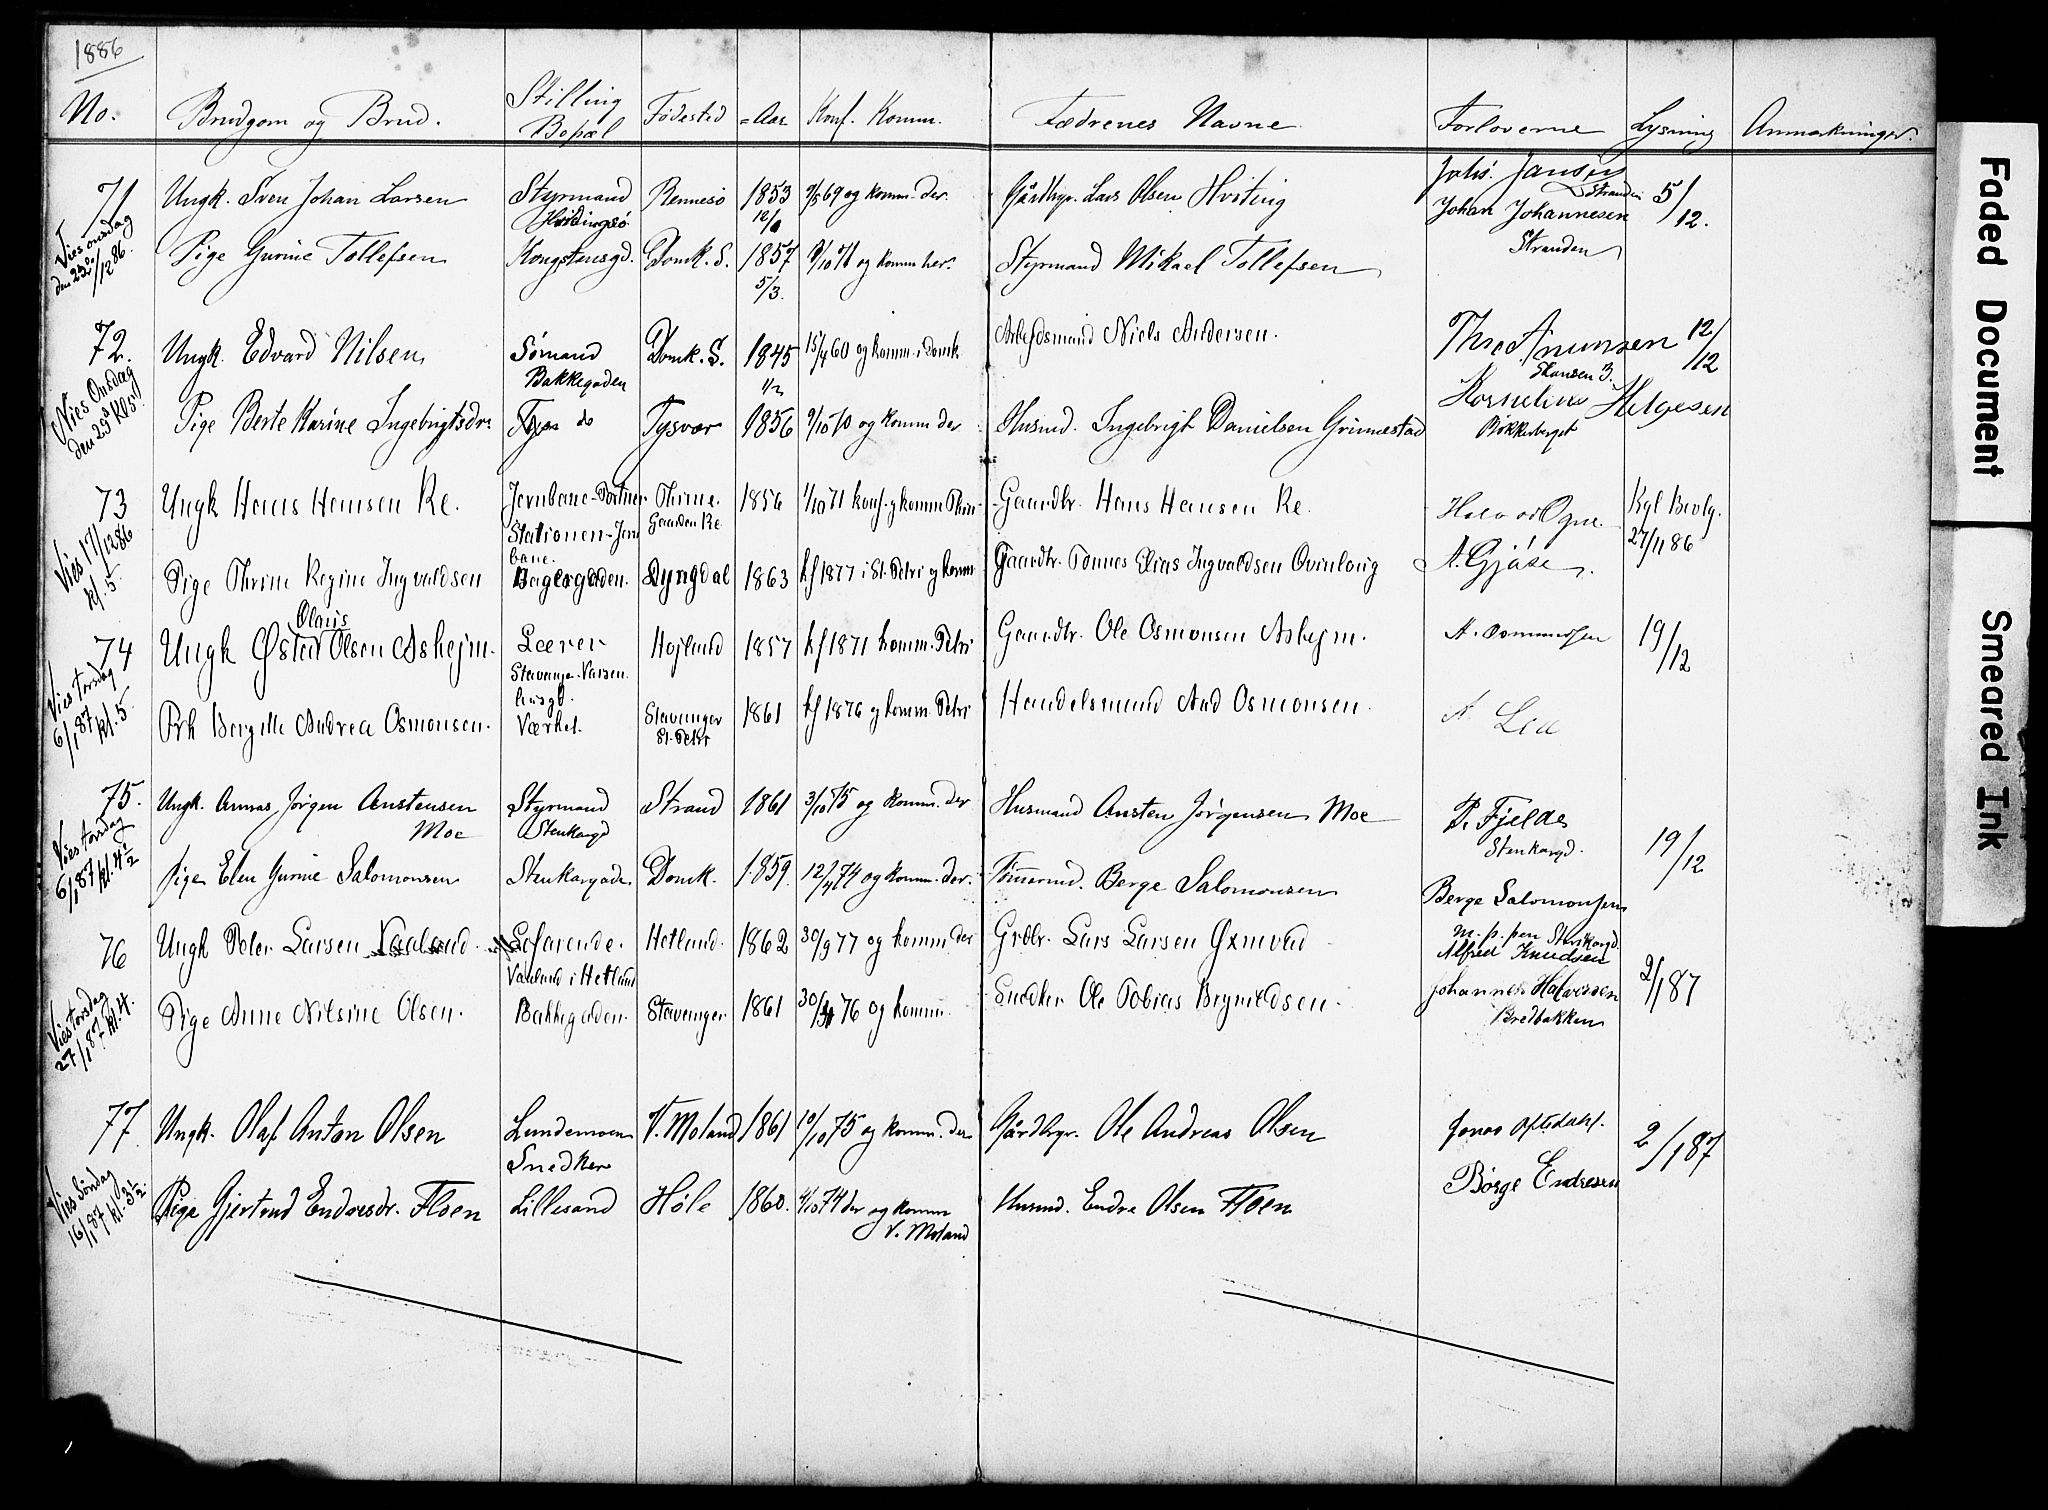 1886
No. Brudgom og Brud. Stilling Bopæl Fødested -Aar Konf. Komm. Fædrenes Navne Forloverne Lysning Anmærkninger.
71 Ungk. Sven Johan Larsen Styrmand Hvidingsö Rennesö 1853 12/ 9/5 69 og komm. der. Gårdbgr. Lars Olsen Hviting Johs. Jansen Stranden 5/12.
Vies onsdag den 22de/12 86.
Johan Johannesen Stranden
Pige Gurine Tollefsen Kongstensgd. Domk. S. 1857 5/3. 8/10 71 og komm her. Styrmand Mikael Tollefsen
72. Ungk. Edvard Nilsen Sømand Bakkegaden Domk. S. 1845 1/2 15/4 60 og komm. i domk Arbeidsmand Niels Andersen. Thre Amunsen Skansen 3. 12/12
Vies Onsdag den 29de Kl 5!
Pige Berte Karine Ingebrigtsdr. do Tysvær 1856 9/10 70 og komm der Husmd. Ingebrigt Danielsen Grinnestad Kornelius Helgesen Bøkkerberget
73 Ungk Hans Hansen Re. Jernbane-Portner Stationen-Jernbane. Thime. Gaarden Re. 1856 1/10 71 konf. g komm Thim- Gaardbr. Hans Hansen Re. Halvor Ogne. Kgl Bevlg. 27/11 86
Vies 17/12 86 kl. 5.
Pige Thrine Regine Ingvaldsen Bagergaden. Lyngdal 1863 kf 1877 i St. Petri g komm Gaardbr. Tønnes Elias Ingvaldsen Ovinlaug A. Gjøse.
74 Ungk Østen Olaus Olsen Ashejm. Lærer Stavanger. Vaisenhusgd. Højland 1857 kf 1871 komm. Petri Gaardbr. Ole Osmonsen Ashejm. A. Osmundsen 19/12
Vies torsdag 6/1 87 kl. 5.
Prk Bergitte Andrea Osmonsen. Værket. Stavanger St. Petri 1861 kf 1876 g komm. Petri Handelsmand Aad Osmonsen. A. Lea
75. Ungk. Annas Jörgen Anstensen Moe Styrmand Stenkargd Strand 1861 3/10 75 og komm. der Husmand Ansten Jörgensen Moe P. Fjelde Stenkargd. 19/12
Vies torsdag 6/1 87 kl. 4½
Pige Elen Gurine Salomonsen Stenkargade. Domk. 1859. 12/4 74 og komm. der. Tömmermd. Berge Salomonsen Berge Salomonsen m. p. pen Stenkargd.
76 Ungk Peler Larsen Vaaland. Lofarende. Vaaland i Hetland Hetland. 1862 30/9 77 og komm der Grdbr. Lars Larsen Øxnevad Alfred Knudsen 2/1 87
Vies torsdag 27/1 87 kl. 4.
Pige Anne Nilsine Olsen. Bakkegaden. Stavanger 1861 30/ 76 og komm. Snedker Ole Tobias Brynildsen. Johannes Halvorsen Bredbakken
77. Ungk. Olaf Anton Olsen Lundemoen Snedker V. Moland 1861 10/10 75 og komm. der Gårdbgr. Ole Andreas Olsen Jonas Oftedahl. 2/1 87
Vies Søndag 16/1 87 kl. 3½.
Pige Gjertrud Endresdr. Floen Lillesand Høle 1860. 4/10 74 der og komm V. Moland Husmd. Endre Olsen Floen Börge Endresen
Faded Document
Smeared Ink